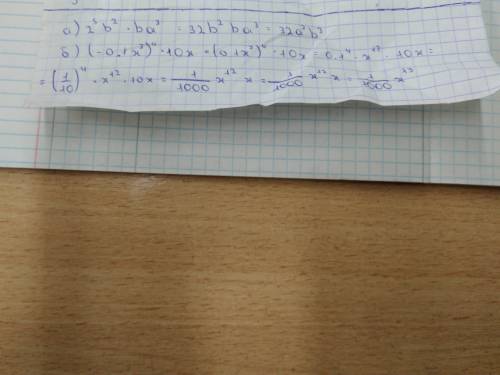 а) 2⁵b² · ba³ = 32b² ba³ = 32a³b³
б) (-0,1x³)⁴ · 10x = (0,1x³)⁴ · 10x = 0,1⁴ · x¹² · 10x =
= (1/10)⁴ · x¹² · 10x = 1/1000 x¹² x = 1/1000 x¹² x = 1/1000 x¹³